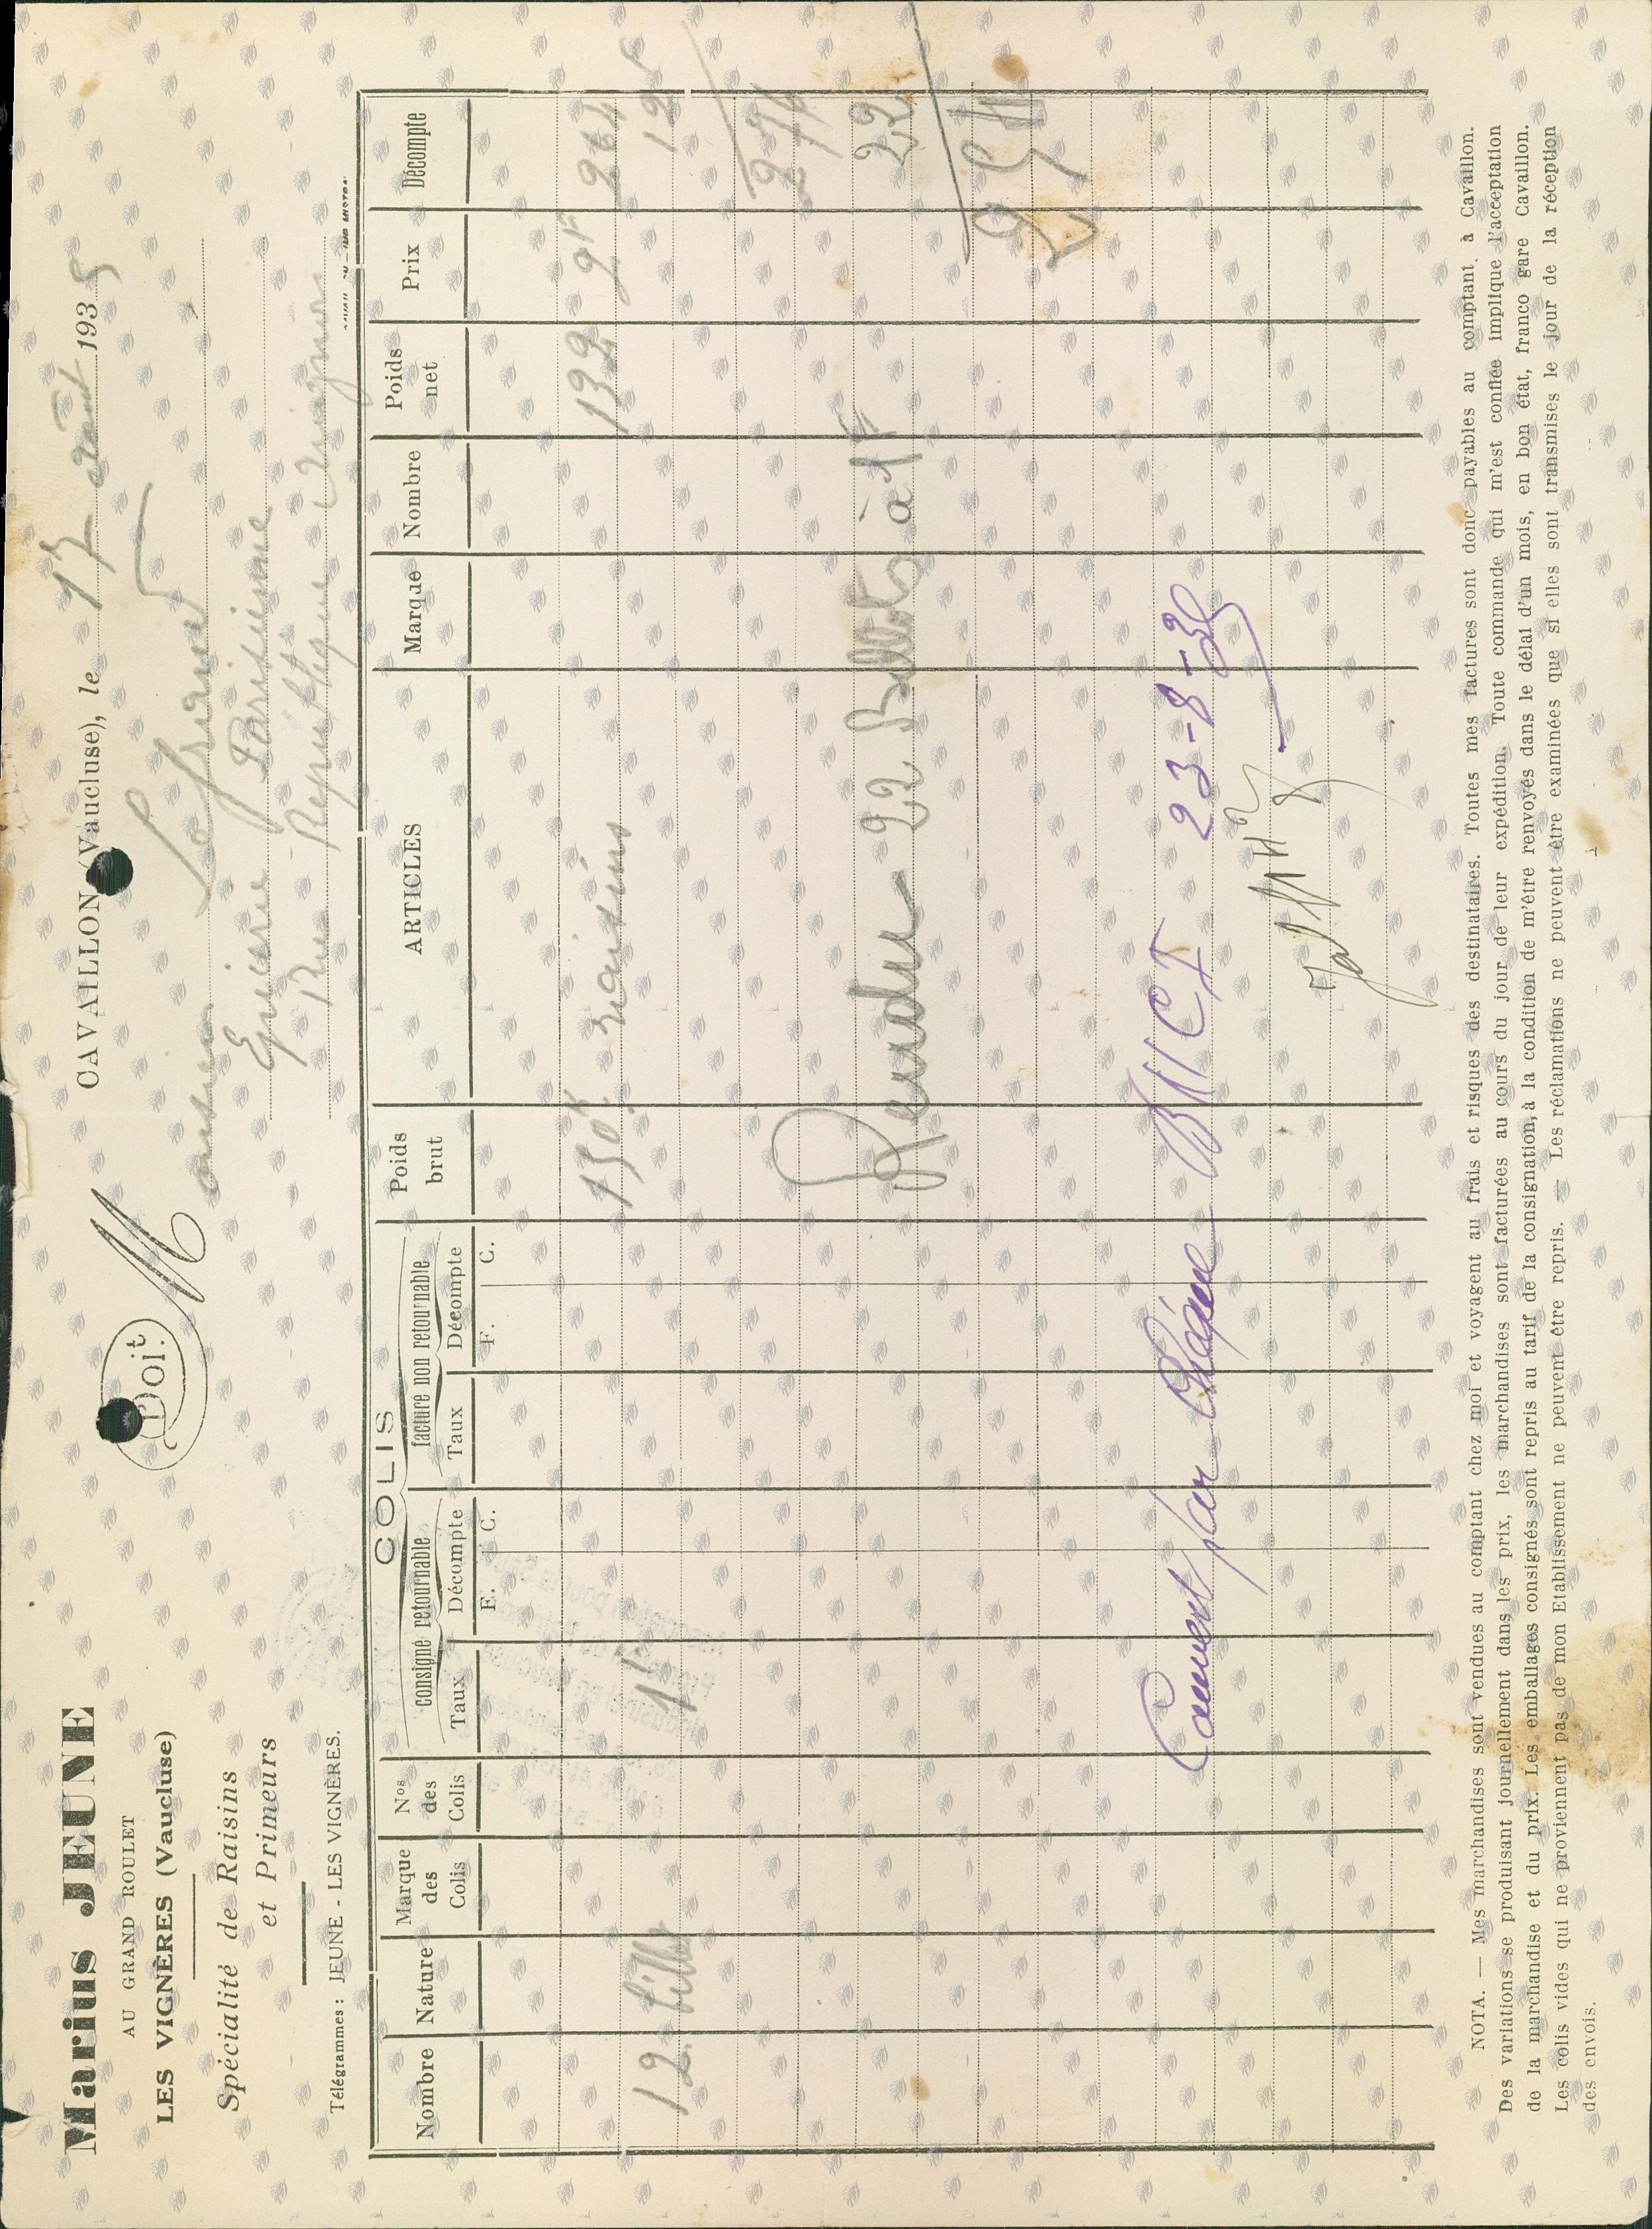 Marius JEUNE
AU GRAND ROULET
LES VIGNÈRES (Vaucluse)
Spécialité de Raisins
et Primeurs
Télégrammes : JEUNE - LES VIGNÈRES.
CAVAILLON (Vaucluse), le 13 août 1935
Doit.
M
Epicerie Parisienne
Rue République Avignon
COLIS
consigné retournable
facturé non retournable
Nombre
Nature
Marque des Colis
Nos des Colis
Taux
Décompte
F. C.
Taux
Décompte
F. C.
Poids brut
ARTICLES
Marque
Nombre
Poids net
Prix
Décompte
150k raisins 132 2F 264
12 1F 12
276
Rendu 22 à 1F 22
254
par chèque BNCI 23-8-35
NOTA. — Mes marchandises sont vendues au comptant chez moi et voyagent au frais et risques des destinataires. Toutes mes factures sont donc payables au comptant à Cavaillon.
Des variations se produisant journellement dans les prix, les marchandises sont facturées au cours du jour de leur expédition. Toute commande qui m'est confiée implique l'acceptation
de la marchandise et du prix. Les emballages consignés sont repris au tarif de la consignation, à la condition de m'être renvoyés dans le délai d'un mois, en bon état, franco gare Cavaillon.
Les colis vides qui ne proviennent pas de mon Etablissement ne peuvent être repris. — Les réclamations ne peuvent être examinées que si elles sont transmises le jour de la réception
des envois.